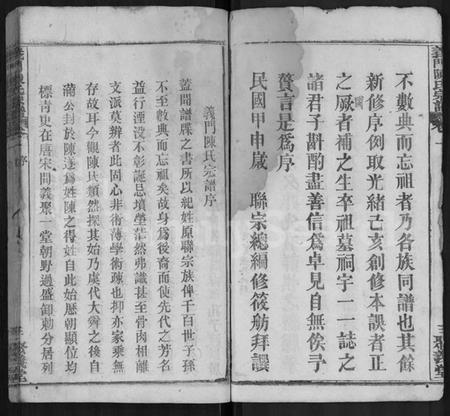 義門陳氏宗譜 卷一
不數典而忘祖者乃各族同譜也其餘
新修序例取光緒己亥創修本誤者正
之厥者補之生卒祖墓祠宇一一誌之
諸君子斟酌盡善信爲卓見自無俟予
贅言是爲序
民國甲申嵗 聯宗總編修筱舫拜譔
三 聚義堂
義門陳氏宗譜序
蓋聞譜牒之書所以紀姓原聯宗族俾千百世子孫
不至數典而忘祖矣故身爲後裔而使先代之芳名
益行湮沒不彰誕忌墳塋茫然弗識甚至骨肉相離
文派莫辨者此固心非術薄學術疎也抑亦家乘無
存故耳今觀陳氏類然探其始乃虞代大舜之後自
滿公封於陳遂爲姓陳之得姓自此始歷朝顯位均
標青史在唐宋間義聚一堂朝野過盛卸勅分居列
序
聚義堂